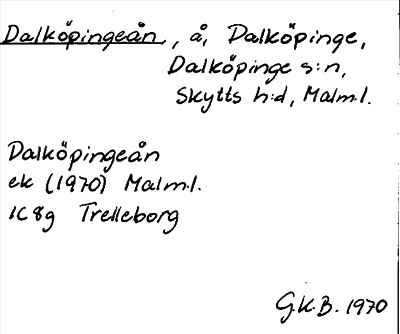 Dalköpingeån, å, Dalköpinge,
Dalköpinge s:n,
Skytts h:d, Malm.l.
Dalköpingeån
ek (1970) Malm.l.
1C 8g Trelleborg
G.K.B. 1970